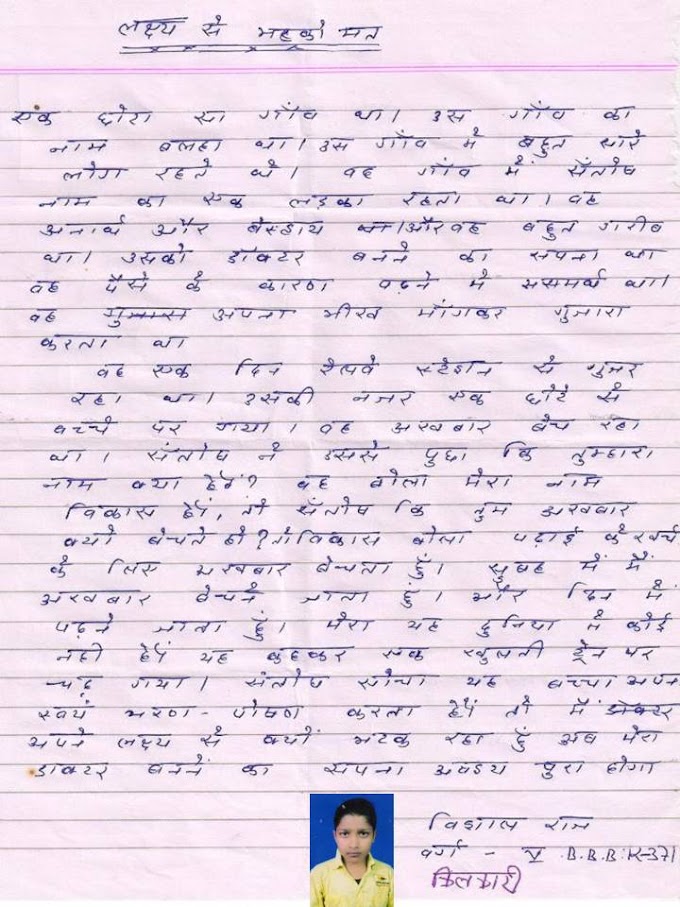 लक्ष्य से भटको मत
एक छोटा सा गाँव था। उस गाँव का
नाम बलहा था। उस गाँव में बहुत सारे
लोग रहते थे। वह गाँव में संतोष
नाम का एक लड़का रहता था। वह
अनार्थ और बेसहाय था।और वह बहुत गरीब
था। उसको डॉक्टर बनने का सपना था
वह पैसे के कारण पढ़ने में असमर्थ था।
वह अपना भीख मांगकर गुजारा
करता था
वह एक दिन रेलवे स्टेशन से गुजर
रहा था। उसकी नजर एक छोटे से
बच्चे पर गया। वह अखबार बेच रहा
था। संतोष ने उससे पुछा कि तुम्हारा
नाम क्या हैं? वह बोला मेरा नाम
विकास हैं, तो संतोष कि तुम अखबार
क्यों बेचते हो? तो विकास बोला पढ़ाई के खर्च
के लिए अखबार बेचता हुं। सुबह में मैं
अखबार बेचने जाता हुं। और दिन में
पढ़ने जाता हुं। मेरा यह दुनिया में कोई
नही हैं यह कहकर एक खुलती ट्रेन पर
चढ़ गया। संतोष सोचा यह बच्चा अपन
स्वयं भरण-पोषण करता हैं तो मैं डॉक्टर
अपने लक्ष्य से क्यों भटक रहा हुं अब मेरा
डाक्टर बननें का सपना अवश्य पुरा होगा
विशाल राज
वर्ग - V B.B.B:K-371
किलकारी